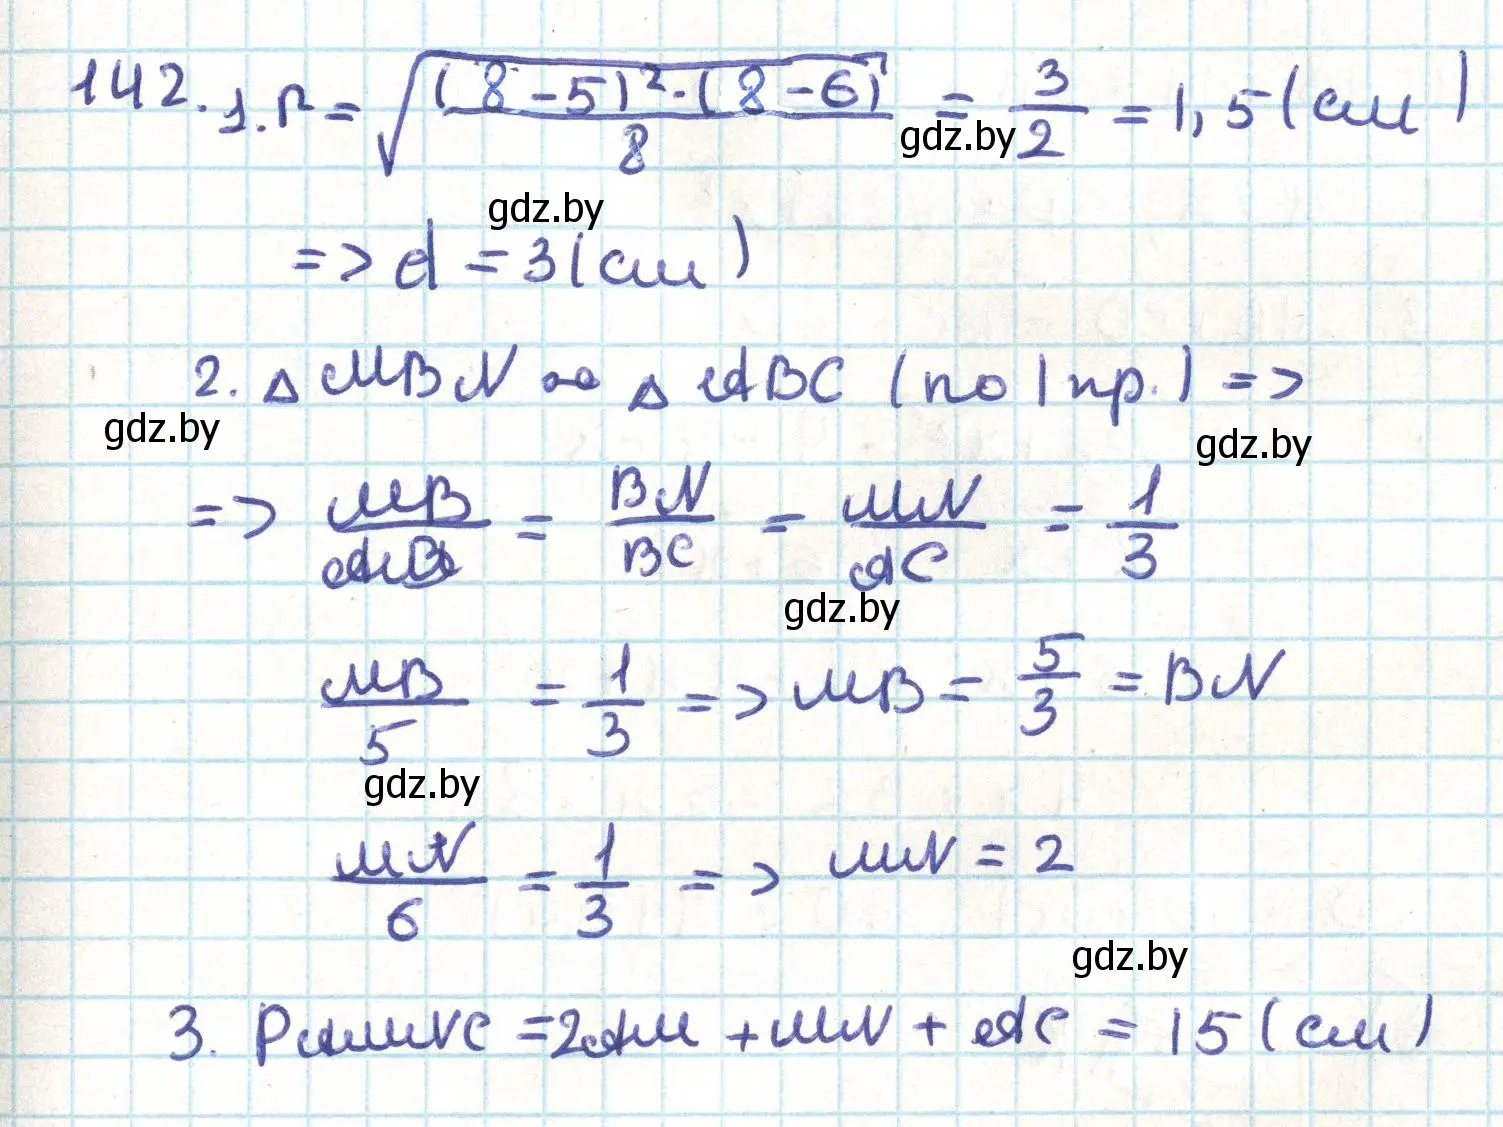 142. 1. r = √((8 – 5)² · (8 – 6) / 8) = 3/2 = 1,5 (см)
gdz.by
gdz.by
=> d = 3 (см)
2. △ MBN ∾ △ ABC (по 1 пр.) =>
gdz.by
gdz.by
=> MB/AB = BN/BC = MN/AC = 1/3
gdz.by
MB/5 = 1/3 => MB = 5/3 = BN
gdz.by
MN/6 = 1/3 => MN = 2
gdz.by
3. PAMNC = 2AM + MN + AC = 15 (см)